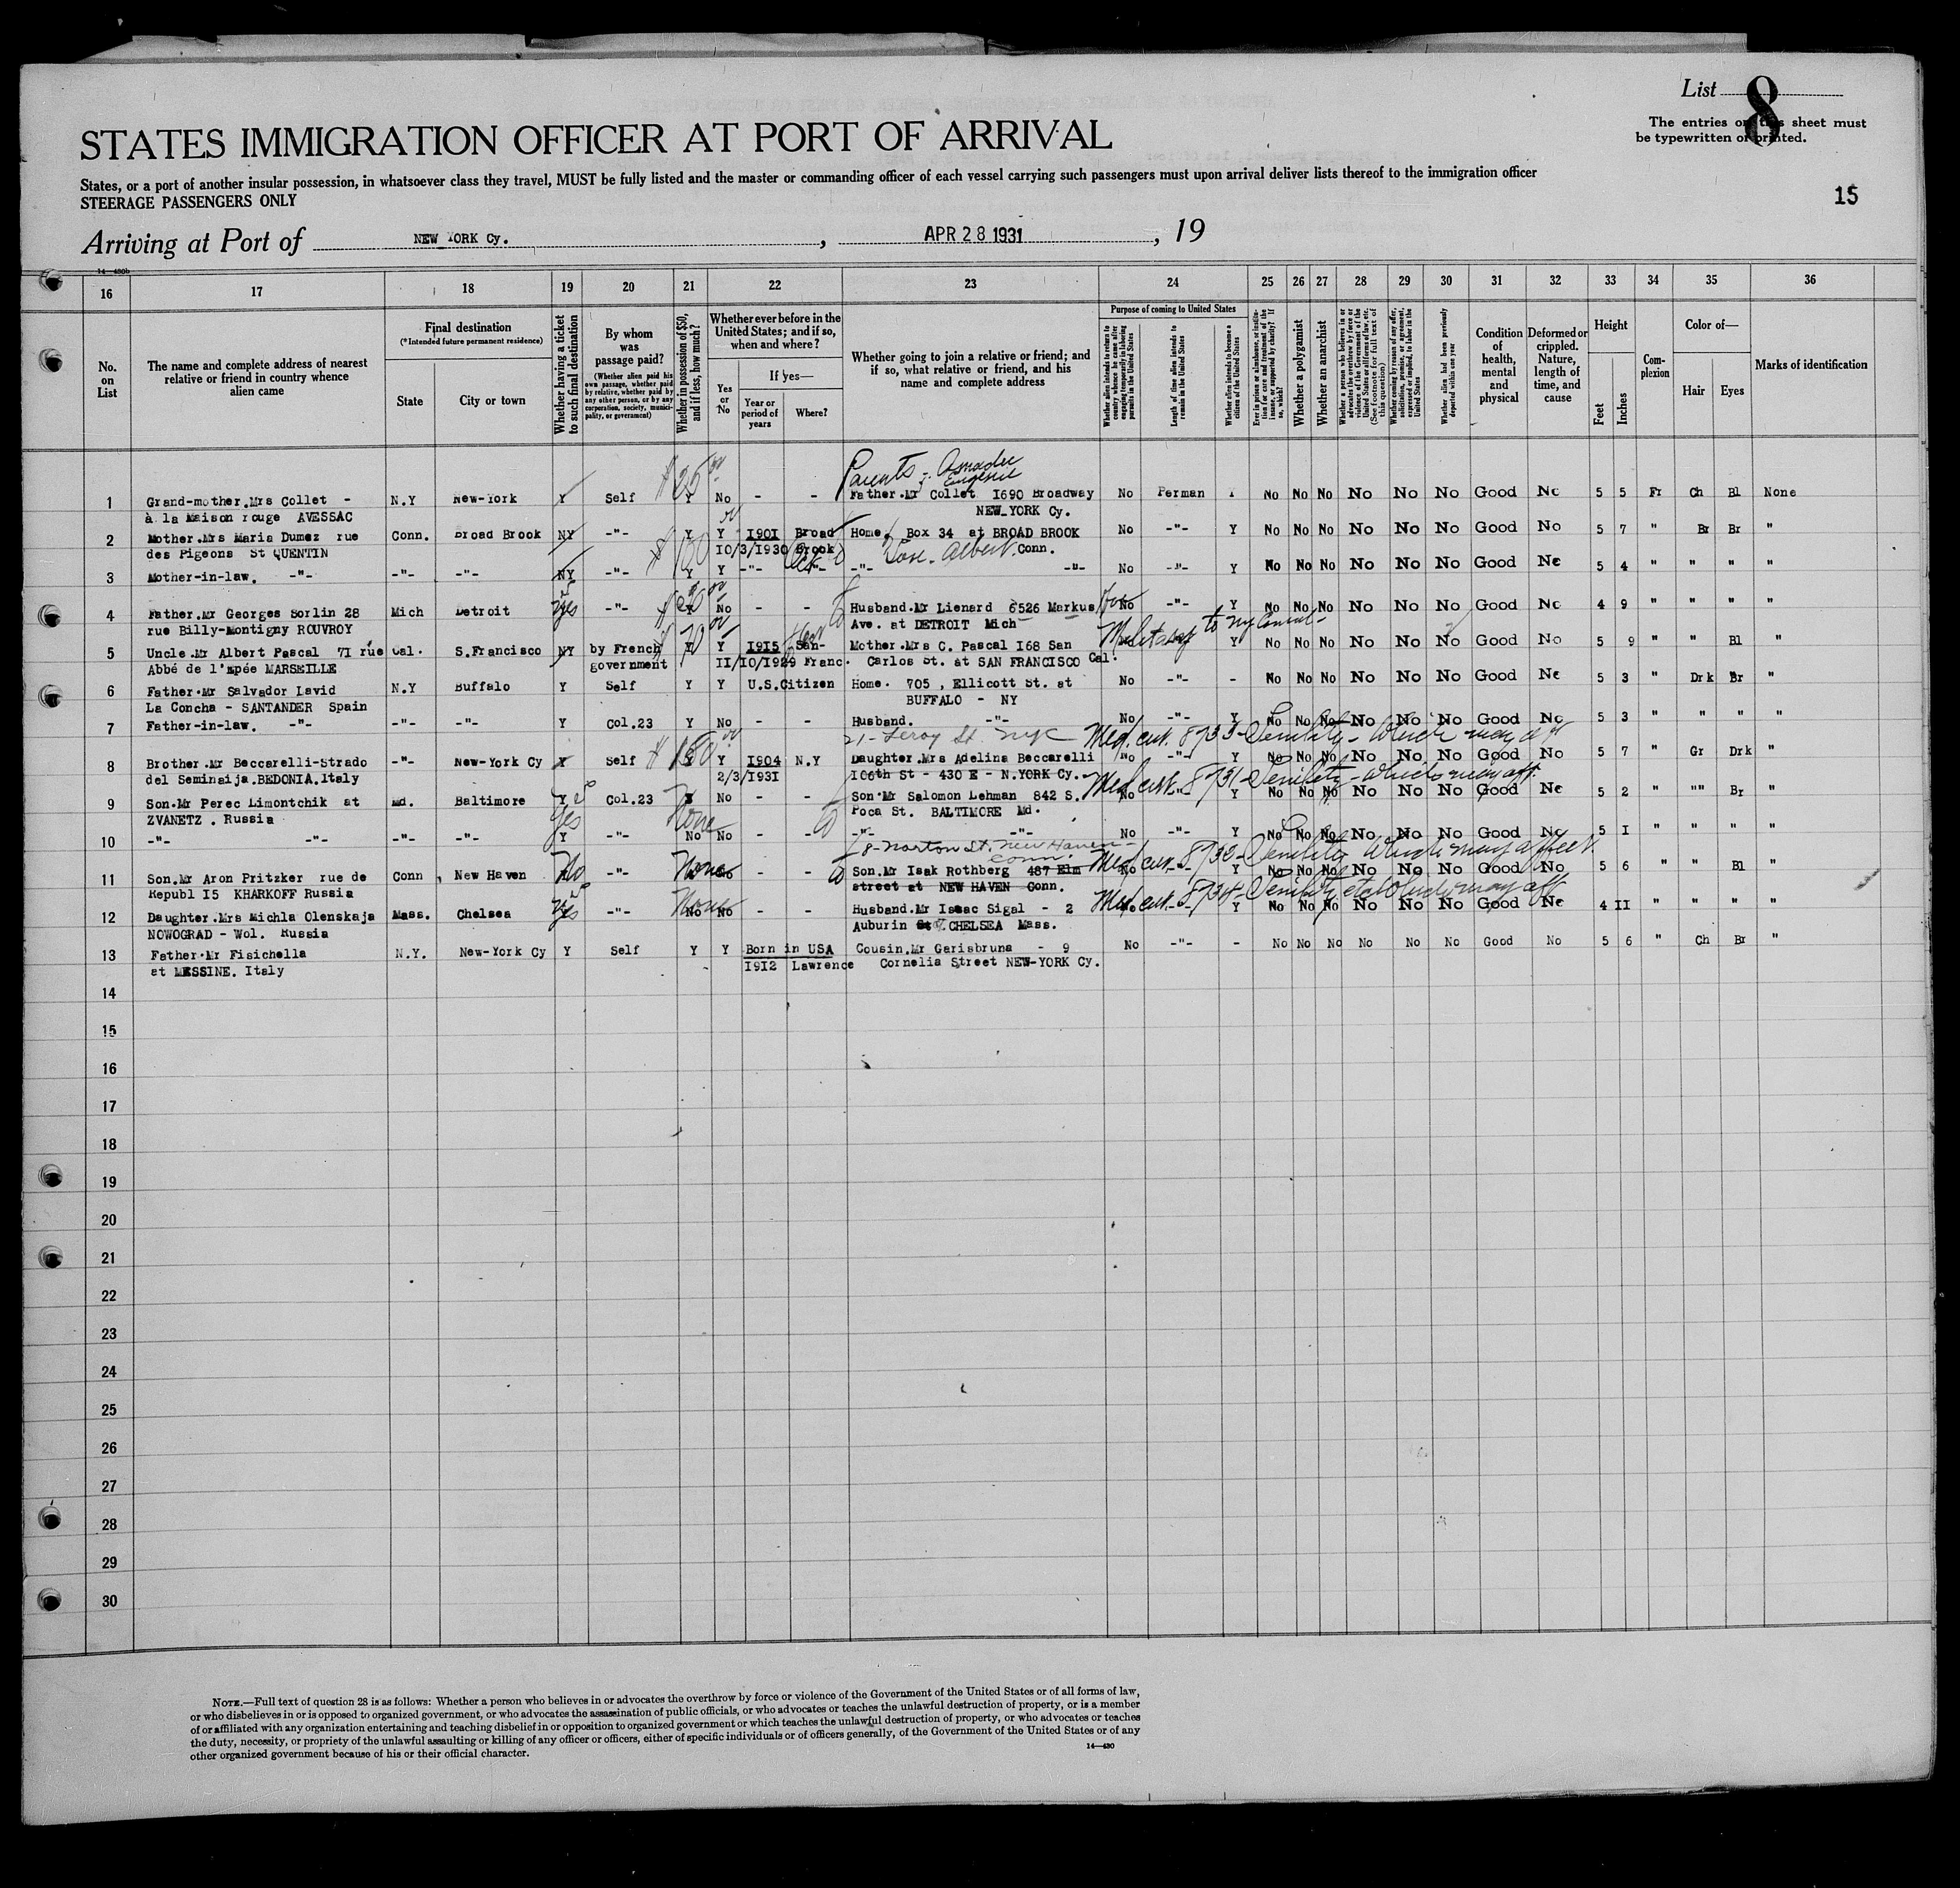 List 8
The entries on this sheet must
be typewritten or printed.
STATES IMMIGRATION OFFICER AT PORT OF ARRIVAL
States, or a port of another insular possession, in whatsoever class they travel, MUST be fully listed and the master or commanding officer of each vessel carrying such passengers must upon arrival deliver lists thereof to the immigration officer
STEERAGE PASSENGERS ONLY
15
Arriving at Port of NEW YORK Cy. , APR 28 1931 , 19
14—480b
16 17 18 19 20 21 22 23 24 25 26 27 28 29 30 31 32 33 34 35 36
No. on List
The name and complete address of nearest relative or friend in country whence alien came
Final destination
(*Intended future permanent residence)
State
City or town
Whether having a ticket to such final destination
By whom was passage paid?
(Whether alien paid his own passage, whether paid by relative, whether paid by any other person, or by any corporation, society, municipality, or government)
Whether in possession of $50, and if less, how much?
Whether ever before in the United States; and if so, when and where?
Yes or No
If yes—
Year or period of years
Where?
Whether going to join a relative or friend; and if so, what relative or friend, and his name and complete address
Purpose of coming to United States
Whether alien intends to return to country whence he came after engaging temporarily in laboring pursuits in the United States
Length of time alien intends to remain in the United States
Whether alien intends to become a citizen of the United States
Ever in prison or almshouse, or institution for care and treatment of the insane, or supported by charity? If so, which?
Whether a polygamist
Whether an anarchist
Whether a person who believes in or advocates the overthrow by force or violence of the Government of the United States or all forms of law, etc. (See footnote for full text of this question)
Whether coming by reason of any offer, solicitation, promise, or agreement, expressed or implied, to labor in the United States
Whether alien had been previously deported within one year
Condition of health, mental and physical
Deformed or crippled. Nature, length of time, and cause
Height
Feet
Inches
Complexion
Color of—
Hair
Eyes
Marks of identification
Parents - Amadee
Eugenie
1 Grand-mother.Mrs Collet - N.Y New-York Y Self $25 Y No - - Father.Mr Collet I690 Broadway No Perman No No No No No No Good No 5 5 Fr Ch Bl None
à la Maison rouge AVESSAC NEW-YORK Cy.
2 Mother.Mrs Maria Dumez rue Conn. Broad Brook NY -"- Y Y I90I Broad Home, Box 34 at BROAD BROOK No -"- Y No No No No No No Good No 5 7 " Br Br "
des Pigeons St QUENTIN I0/3/I930 Brook Conn.
3 Mother-in-law. -"- -"- -"- NY -"- Y Y -"- -"- -"- -"- No -"- Y No No No No No No Good No 5 4 " " " "
4 Father.Mr Georges Sorlin 28 Mich Detroit yes -"- Y No - - Husband.Mr Lienard 6526 Markus No -"- Y No No No No No No Good No 4 9 " " " "
rue Billy-Montigny ROUVROY Ave. at DETROIT Mich
5 Uncle.Mr Albert Pascal 7I rue Cal. S.Francisco NY by French 70 Y Y I9I5 San- Mother.Mrs C. Pascal I68 San Y No No No No No No Good No 5 9 " " Bl "
Abbé de l'Epée MARSEILLE government II/I0/I929 Franc. Carlos St. at SAN FRANCISCO Cal.
6 Father.Mr Salvador Lavid N.Y Buffalo Y Self Y Y U.S.Citizen Home. 705 , Ellicott St. at No -"- - No No No No No No Good No 5 3 " Drk Br "
La Concha - SANTANDER Spain BUFFALO - NY
7 Father-in-law. -"- -"- -"- Y Col.23 Y No - - Husband. -"- No -"- Y No No No No No No Good No 5 3 " " " "
21- Leroy St. nyc Med. cert. 8733-Senility-which may aff
8 Brother.Mr Beccarelli-Strado -"- New-York Cy Y Self $150 Y Y I904 N.Y Daughter.Mrs Adelina Beccarelli No -"- Y No No No No No No Good No 5 7 " Gr Drk "
del Seminaija.BEDONIA.Italy 2/3/I93I I06th St - 430 E - N.YORK Cy. Med. cert. 8731-Senility-which may aff.
9 Son.Mr Perec Limontchik at Md. Baltimore Y Col.23 No - - Son.Mr Salomon Lehman 842 S. No -"- Y No No No No No No Good No 5 2 " "" Br "
ZVANETZ . Russia Yes None Poca St. BALTIMORE Md.
10 -"- -"- -"- -"- Y -"- No No - - -"- -"- No -"- Y No No No No No No Good No 5 I " " " "
18-Norton St. New Haven-
Conn. Med. cert. 8732-Senility which may affect.
11 Son.Mr Aron Pritzker rue de Conn New Haven No -"- None No - - Son.Mr Isak Rothberg 487 Elm No -"- Y No No No No No No Good No 5 6 " " Bl "
Republ I5 KHARKOFF Russia street at NEW HAVEN Conn. Med. cert. 8734-Senility etc which may aff
12 Daughter.Mrs Michla Olenskaja Mass. Chelsea Yes -"- None No No - - Husband.Mr Isaac Sigal - 2 No Y No No No No No No Good No 4 II " " " "
NOWOGRAD - Wol. Russia Auburin St CHELSEA Mass.
13 Father.Mr Fisichella N.Y. New-York Cy Y Self Y Y Born in USA Cousin.Mr Garisbruna - 9 No -"- - No No No No No No Good No 5 6 " Ch Br "
at MESSINE. Italy I9I2 Lawrence Cornelia Street NEW-YORK Cy.
14
15
16
17
18
19
20
21
22
23
24
25
26
27
28
29
30
NOTE.—Full text of question 28 is as follows: Whether a person who believes in or advocates the overthrow by force or violence of the Government of the United States or of all forms of law,
or who disbelieves in or is opposed to organized government, or who advocates the assassination of public officials, or who advocates or teaches the unlawful destruction of property, or is a member
of or affiliated with any organization entertaining and teaching disbelief in or opposition to organized government or which teaches the unlawful destruction of property, or who advocates or teaches
the duty, necessity, or propriety of the unlawful assaulting or killing of any officer or officers, either of specific individuals or of officers generally, of the Government of the United States or of any
other organized government because of his or their official character.
14—480